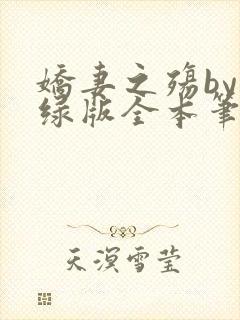 娇妻之殇by
绿版全本笔
天溟雪莹